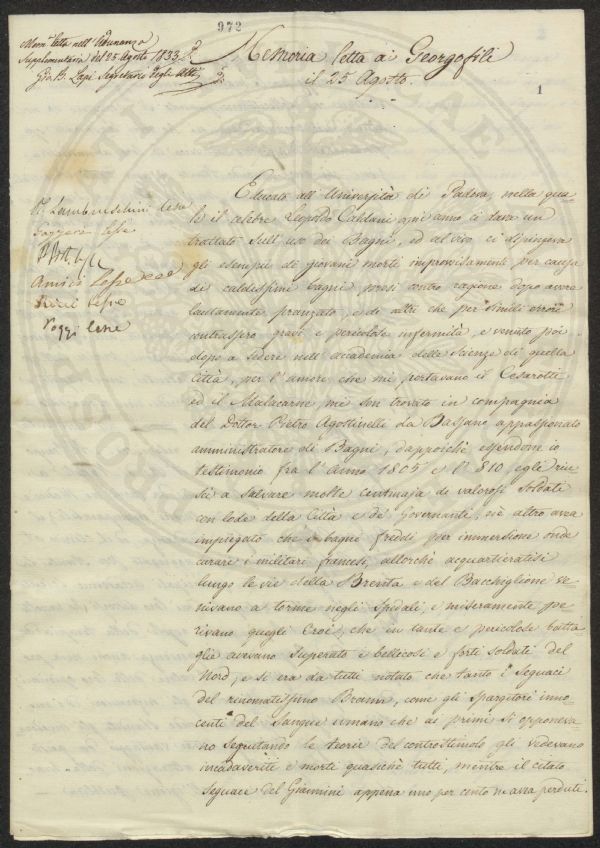 972
Memª letta nell' Adunanza
Supplementaria del 25 Agosto 1833.
Gio. B. Lapi Segretario degli Atti
Memoria letta a' Georgofili
il 25 Agosto.
1
R. Lambruschini lesse
Gazzeri lesse
Amici lesse
Ricci lesse
Poggi lesse
Educato all'Università di Padova, nella qua-
le il celebre Leopoldo Caldani ogni anno ci dava un
trattato sull'uso dei Bagni, ed al vivo ci dipingeva
gli esempii di giovani morti improvvisamente per causa
di caldissimi bagni presi contro ragione dopo avere
lautamente pranzato, e di altri che per simili errori
contrassero gravi e pericolose infermità, e venuto poi
dopo a sedere nell'accademia delle Scienze di quella
Città, per l'amore che mi portavano il Cesarotti
ed il Malacarne, mi son trovato in compagnia
del Dottor Pietro Agostinelli da Bassano appassionato
amministratore di Bagni, dapoichè essendone io
testimonio fra l'Anno 1805 e l'810, egli riu-
scì a salvare molte centinaja de valorosi soldati
con lode della Città e de' Governanti, nè altro avea
impiegato che i bagni freddi per immersione onde
curare i militari francesi, allorchè acquartieratisi
lungo le vie della Brenta e del Bacchiglione ve-
nivano a torme negli Spedali, e miseramente pe-
rivano quegli Eroi, che in tante e pericolose batta-
glie avevano superato i bellicosi e forti soldati del
Nord, e si era da tutti notato che tanto i seguaci
del rinomatissimo Brown, come gli spargitori inno-
centi del sangue umano che ai primi si oppone va-
no seguitando le teorie del controstimolo gli vedevano
incadaveriti e morti quasichè tutti, mentre il citato
seguace del Giannini appena uno per cento ne avea perduti.